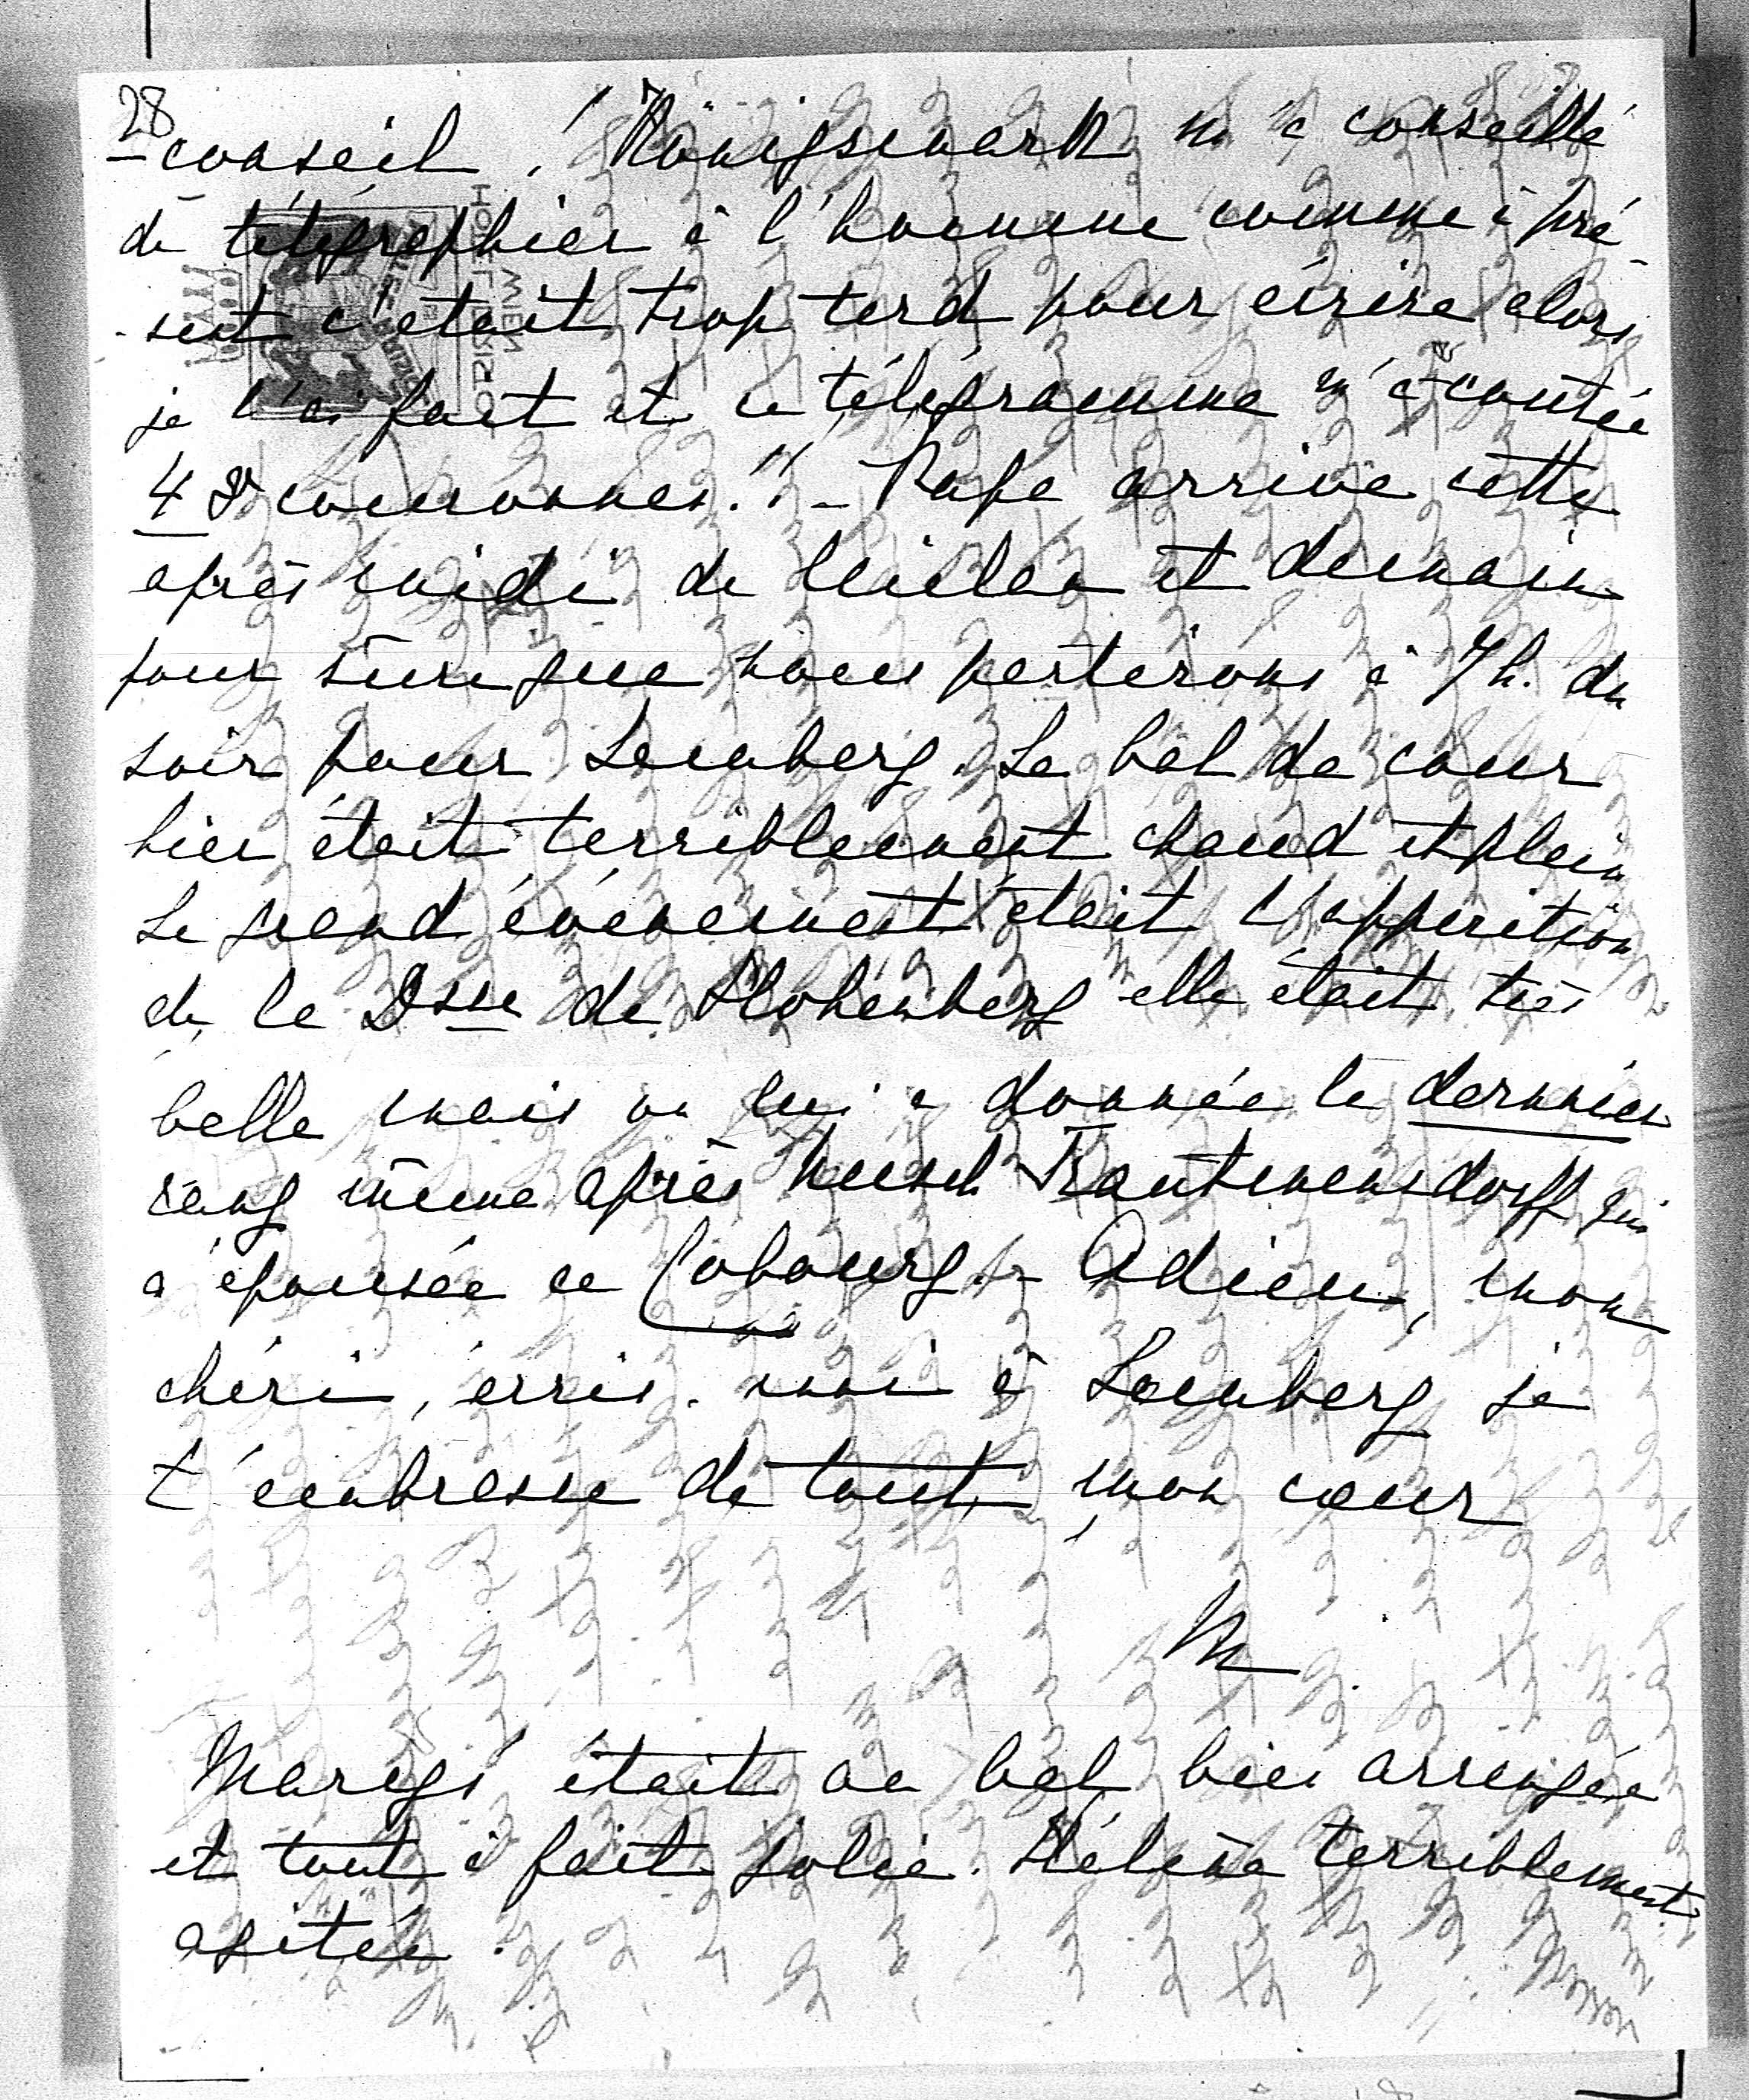 28
-conseil. "Königswarth m'a conseillé
de télégraphier à l'homme comme à pré-
-sent c'était trop tard pour écrire alors
je l'ai fait et ce télégramme m'a coutée
48 couronnes." - Papa arrive cette
après midi de et demain
pour sure que nous partirons à 7h. du
soir pour Lemberg. Le bal de cour
hier était terriblement chaud et plein
Le grand événement était l'apparition
de la Dsse de Hohenberg elle était très
belle mais on lui a donnée le dernier
rang même après Trauttmansdorff qui
a épousée ce Cobourg. - Adieu, mon
chéri, écris-moi à Lemberg je
t'embrasse de tout mon cœur
M.
était au bal bien arrangée
et tout à fait jolie. Hélène terriblement
agitée.
HOTEL BRISTOL
WIEN